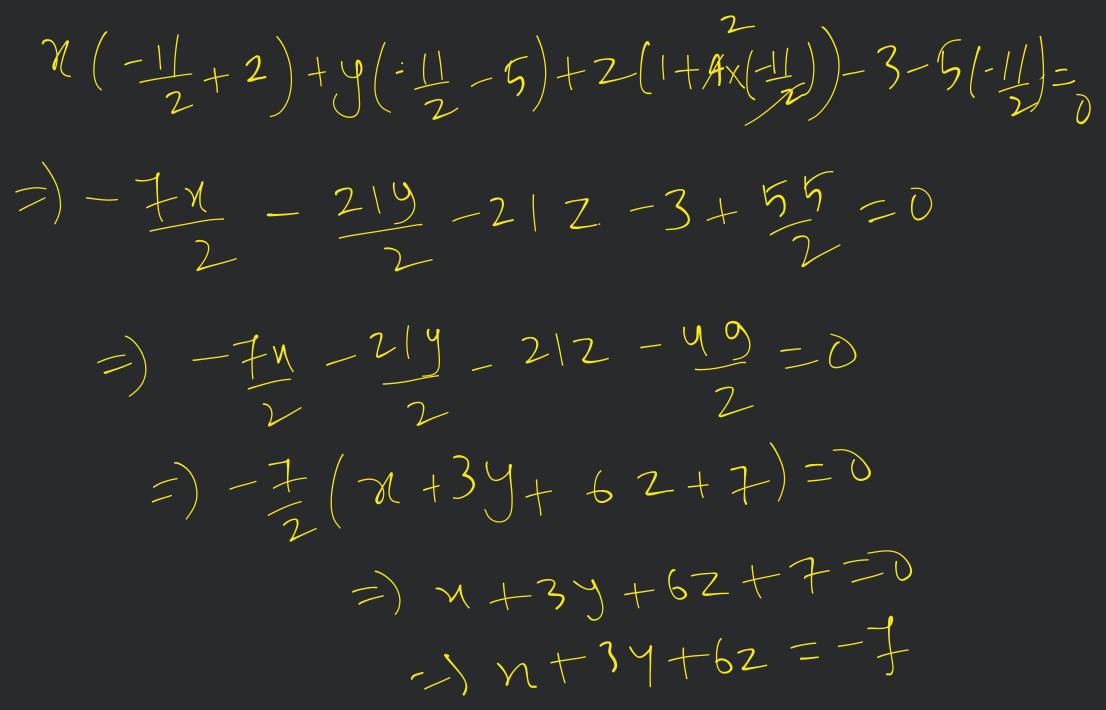 x(-11/2 + 2) + y(-11/2 - 5) + z(1 + 4×(-11/2)) - 3 - 5(-11/2) = 0
⇒ - 7x/2 - 21y/2 - 21z - 3 + 55/2 = 0
⇒ -7x/2 - 21y/2 - 21z - 49/2 = 0
⇒ -7/2 (x + 3y + 6z + 7) = 0
⇒ x + 3y + 6z + 7 = 0
⇒ x + 3y + 6z = -7